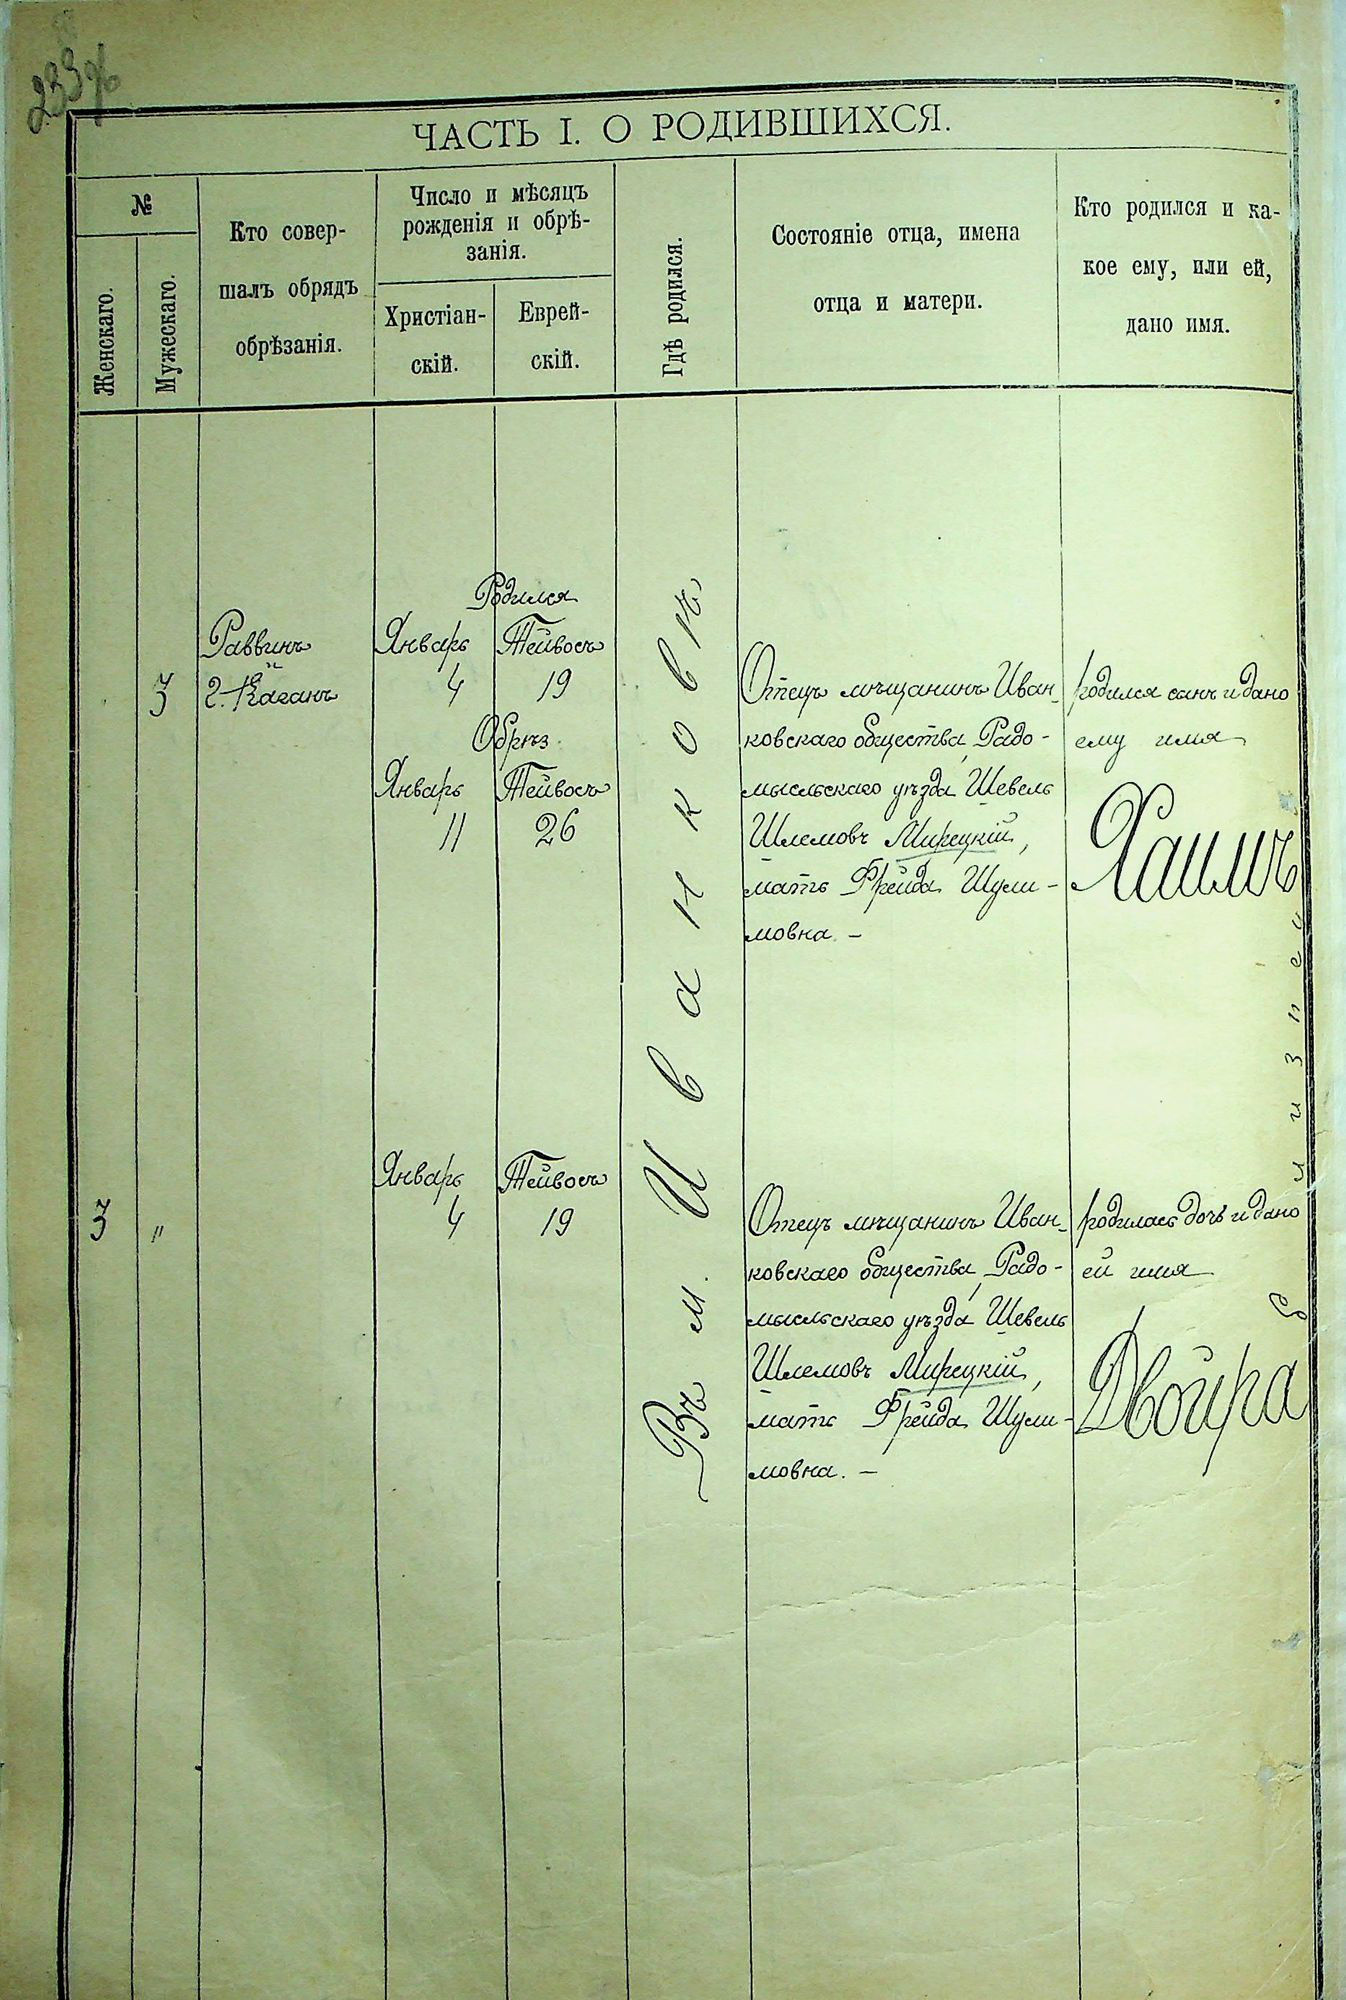 ЧАСТЬ I. О РОДИВШИХСЯ.
№
Женскаго.
Мужескаго.
Кто совер-
шалъ обрядъ
обрѣзанія.
Число и мѣсяцъ
рожденія и обрѣ-
занія.
Христіан-
скій.
Еврей-
скій.
Гдѣ родился.
Состояніе отца, имена
отца и матери.
Кто родился и ка-
кое ему, или ей,
дано имя.
3
Раввинъ
Г. Каганъ
Родился
Январь Тейвосъ
4 19
Обрѣз.
Январь Тейвосъ
11 26
Въ м. Иванковѣ
Отецъ мѣщанинъ Иван-
ковскаго общества, Радо-
мысльскаго уѣзда Шевель
Шлемовъ Мирецкій,
мать Фрейда Шули-
мовна. –
родился сынъ и дано
ему имя
Хаимъ
3 "
Январь Тейвосъ
4 19
Отецъ мѣщанинъ Иван-
ковскаго общества, Радо-
мысльскаго уѣзда Шевель
Шлемовъ Мирецкій,
мать Фрейда Шули-
мовна. –
родилась дочь и дано
ей имя
Двойра